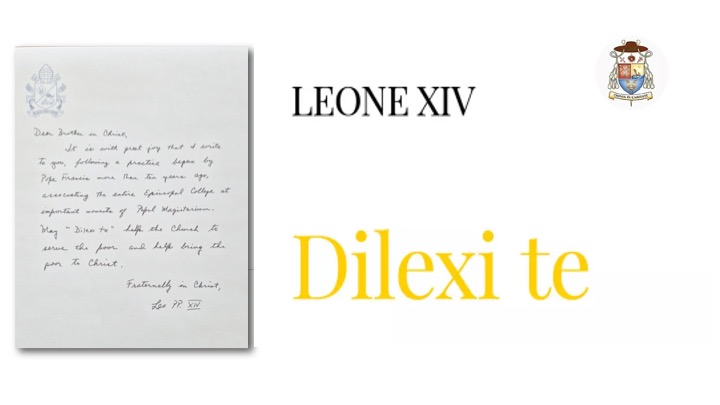 Dear Brother in Christ,
It is with great joy that I write
to you, following a practice begun by
Pope Francis more than ten years ago,
associating the entire Episcopal College at
important moments of Papal Magisterium.
May "Dilexi te" help the Church to
serve the poor and help bring the
poor to Christ.
Fraternally in Christ,
Leo PP. XIV
LEONE XIV
Dilexi te